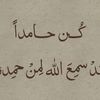 كُن حامداً
سمِعَ الله لِمَنْ حمِده